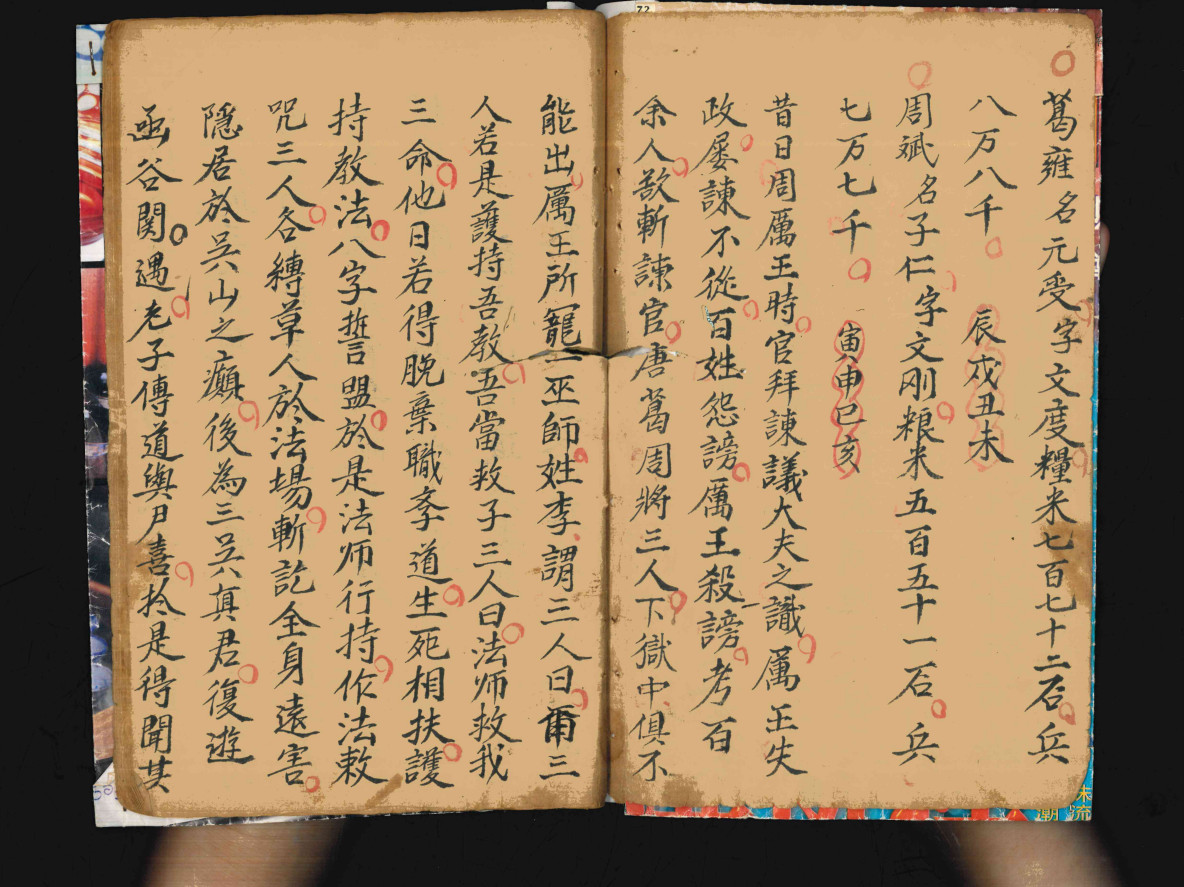 葛雍名元受字文度糧米七百七十二石兵
八万八千 辰戌丑未
周斌名子仁字文刚粮米五百五十一石兵
七万七千 寅申巳亥
昔日周厲王時官拜諫議大夫之識厲王失
政屡諫不從百姓怨謗厲王殺謗考百
余人欲斬諫官唐葛周將三人下獄中俱不
能出厲王所寵一巫師姓李謂三人曰爾三
人若是護持吾教吾當救子三人曰法师救我
三命他日若得脱棄職奉道生死相扶護
持教法八字誓言盟於是法师行持作法敕
咒三人各縛草人於法場斬訖全身遠害
隱居於吳山之癲後為三吳真君復遊
函谷関遇老子傳道與尹喜於是得聞其
72
末流
潮